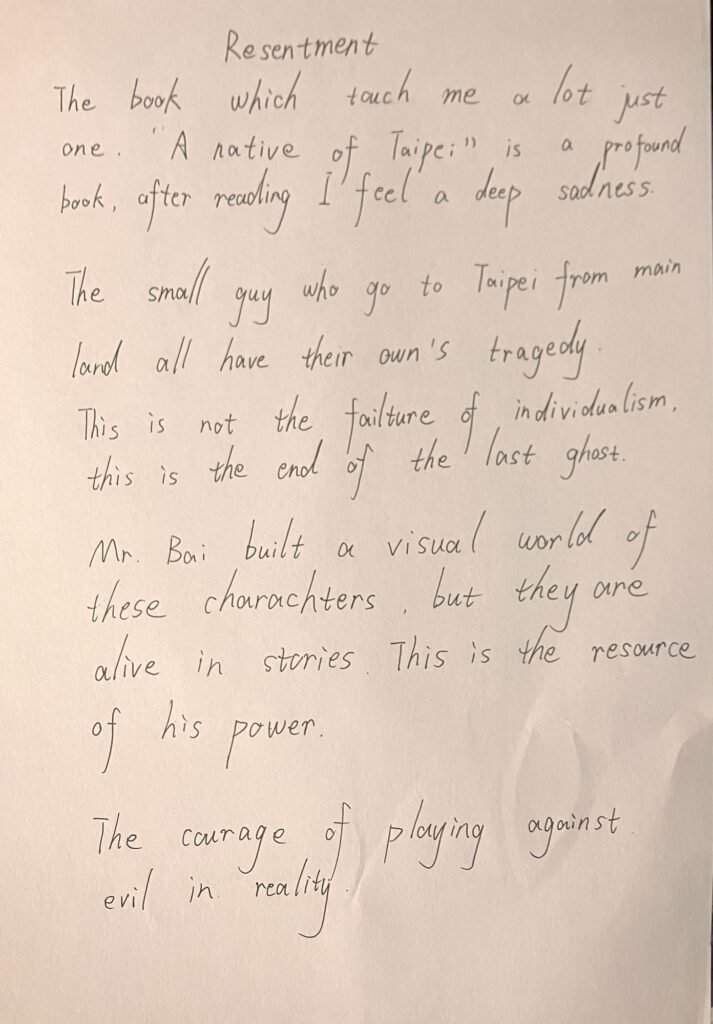 Resentment
The book which touch me a lot just
one. "A native of Taipei" is a profound
book, after reading I feel a deep sadness.
The small guy who go to Taipei from main
land all have their own's tragedy.
This is not the failture of individualism,
this is the end of the last ghost.
Mr. Bai built a visual world of
these charachters, but they are
alive in stories. This is the resource
of his power.
The courage of playing against
evil in reality.